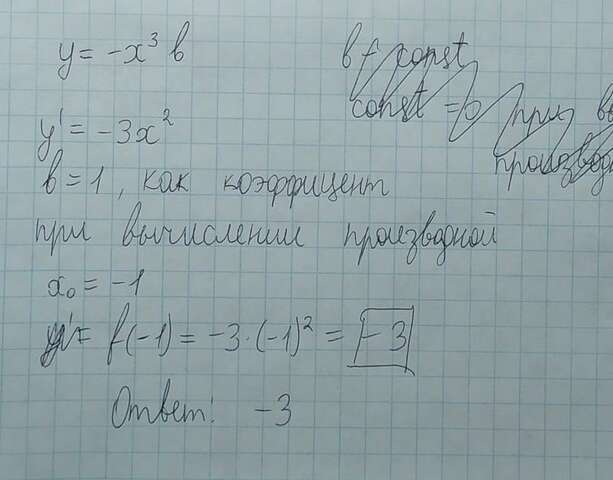 y = -x³ в
в f const
const = 0 при
y' = -3x²
в = 1, как коэффицент
при вычислении производной
x₀ = -1
f(-1) = -3·(-1)² = -3
Ответ: -3